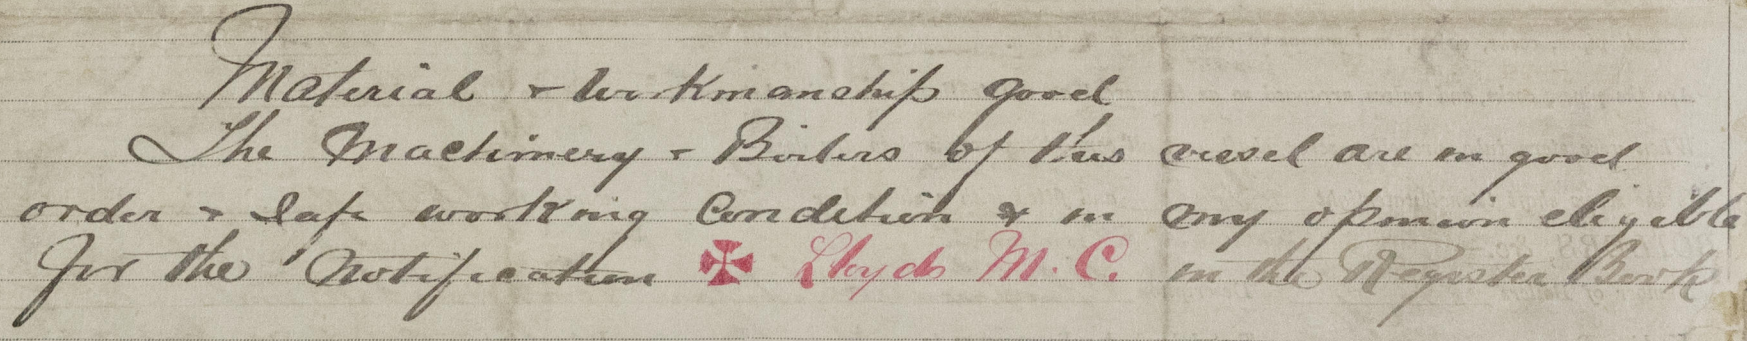 Material & Workmanship good
The Machinery & Boilers of this vessel are in good
order & safe working Condition & in my opinion eligible
for the Notification ✠ Lloyds M.C. in the Register Book